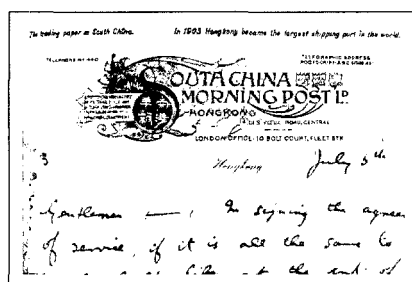 The leading paper in South China. In 1903 Hongkong became the largest shipping port in the world.
TELEPHONE No.
TELEGRAPHIC ADDRESS
SOUTH CHINA
MORNING POST LD.
HONGKONG
ROAD, CENTRAL
LONDON OFFICE: 10 BOLT COURT, FLEET STR
Hongkong July 5th
Gentlemen —, In signing the agree
of service, if it is all the same to
at the end of